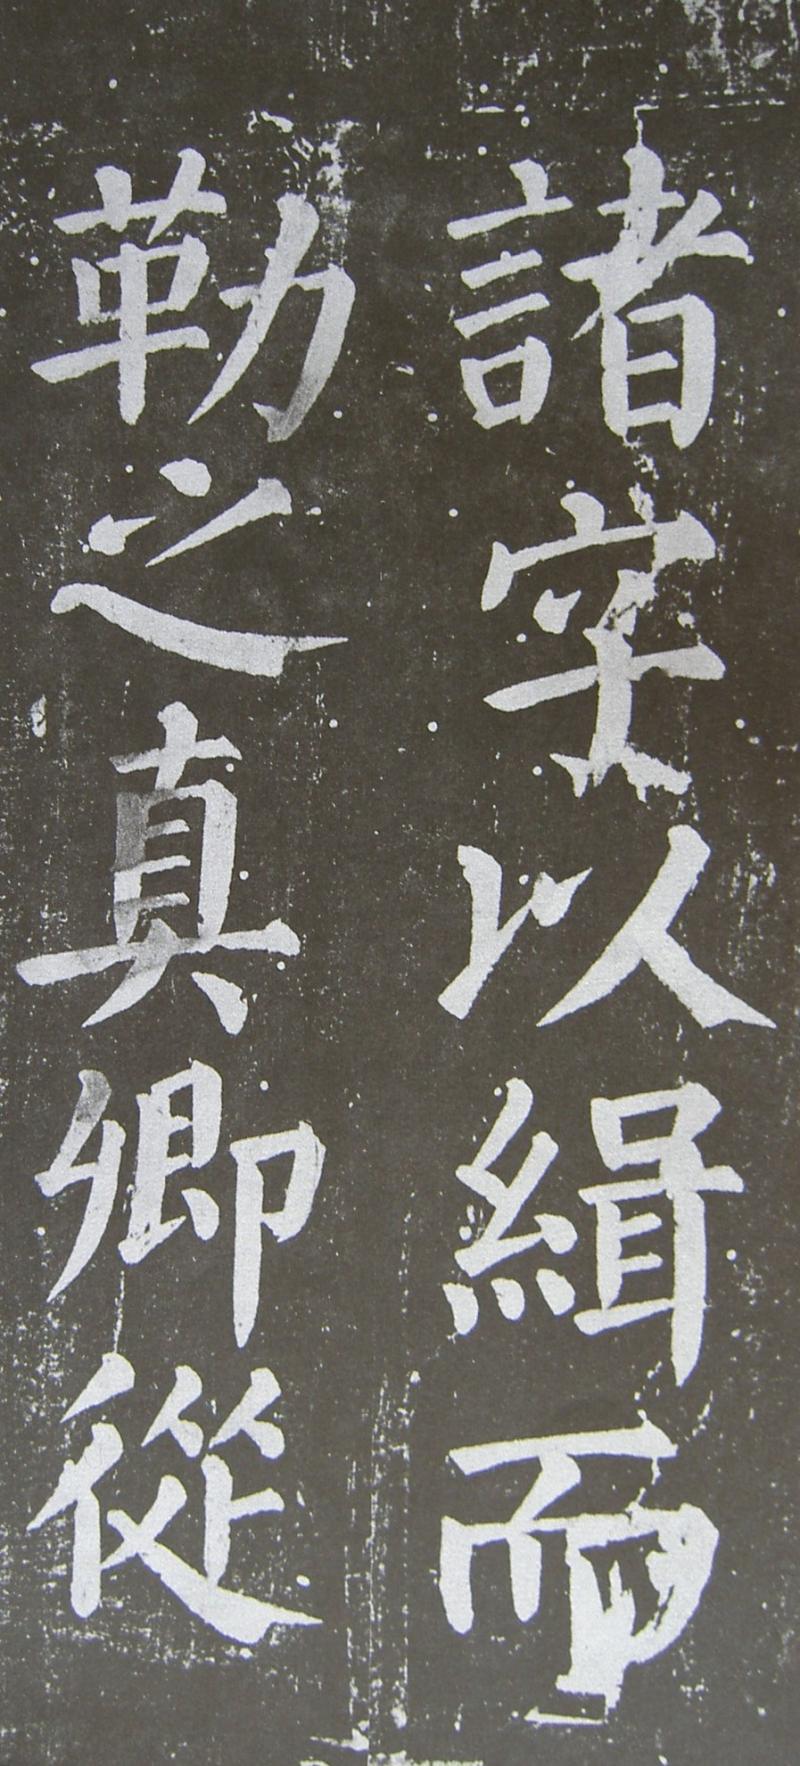 諸以緝而
勒之真卿從